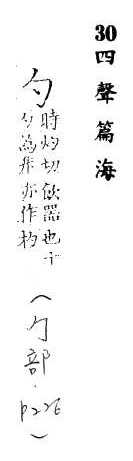 30四聲篇海
勺
時灼切飲器也十
勺為升亦作杓
（勹部．p226）